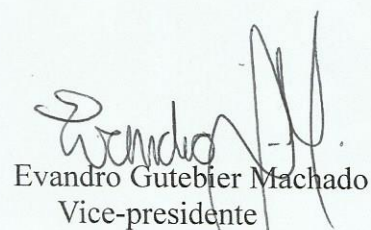 Evandro
Evandro Gutebier Machado
Vice-presidente